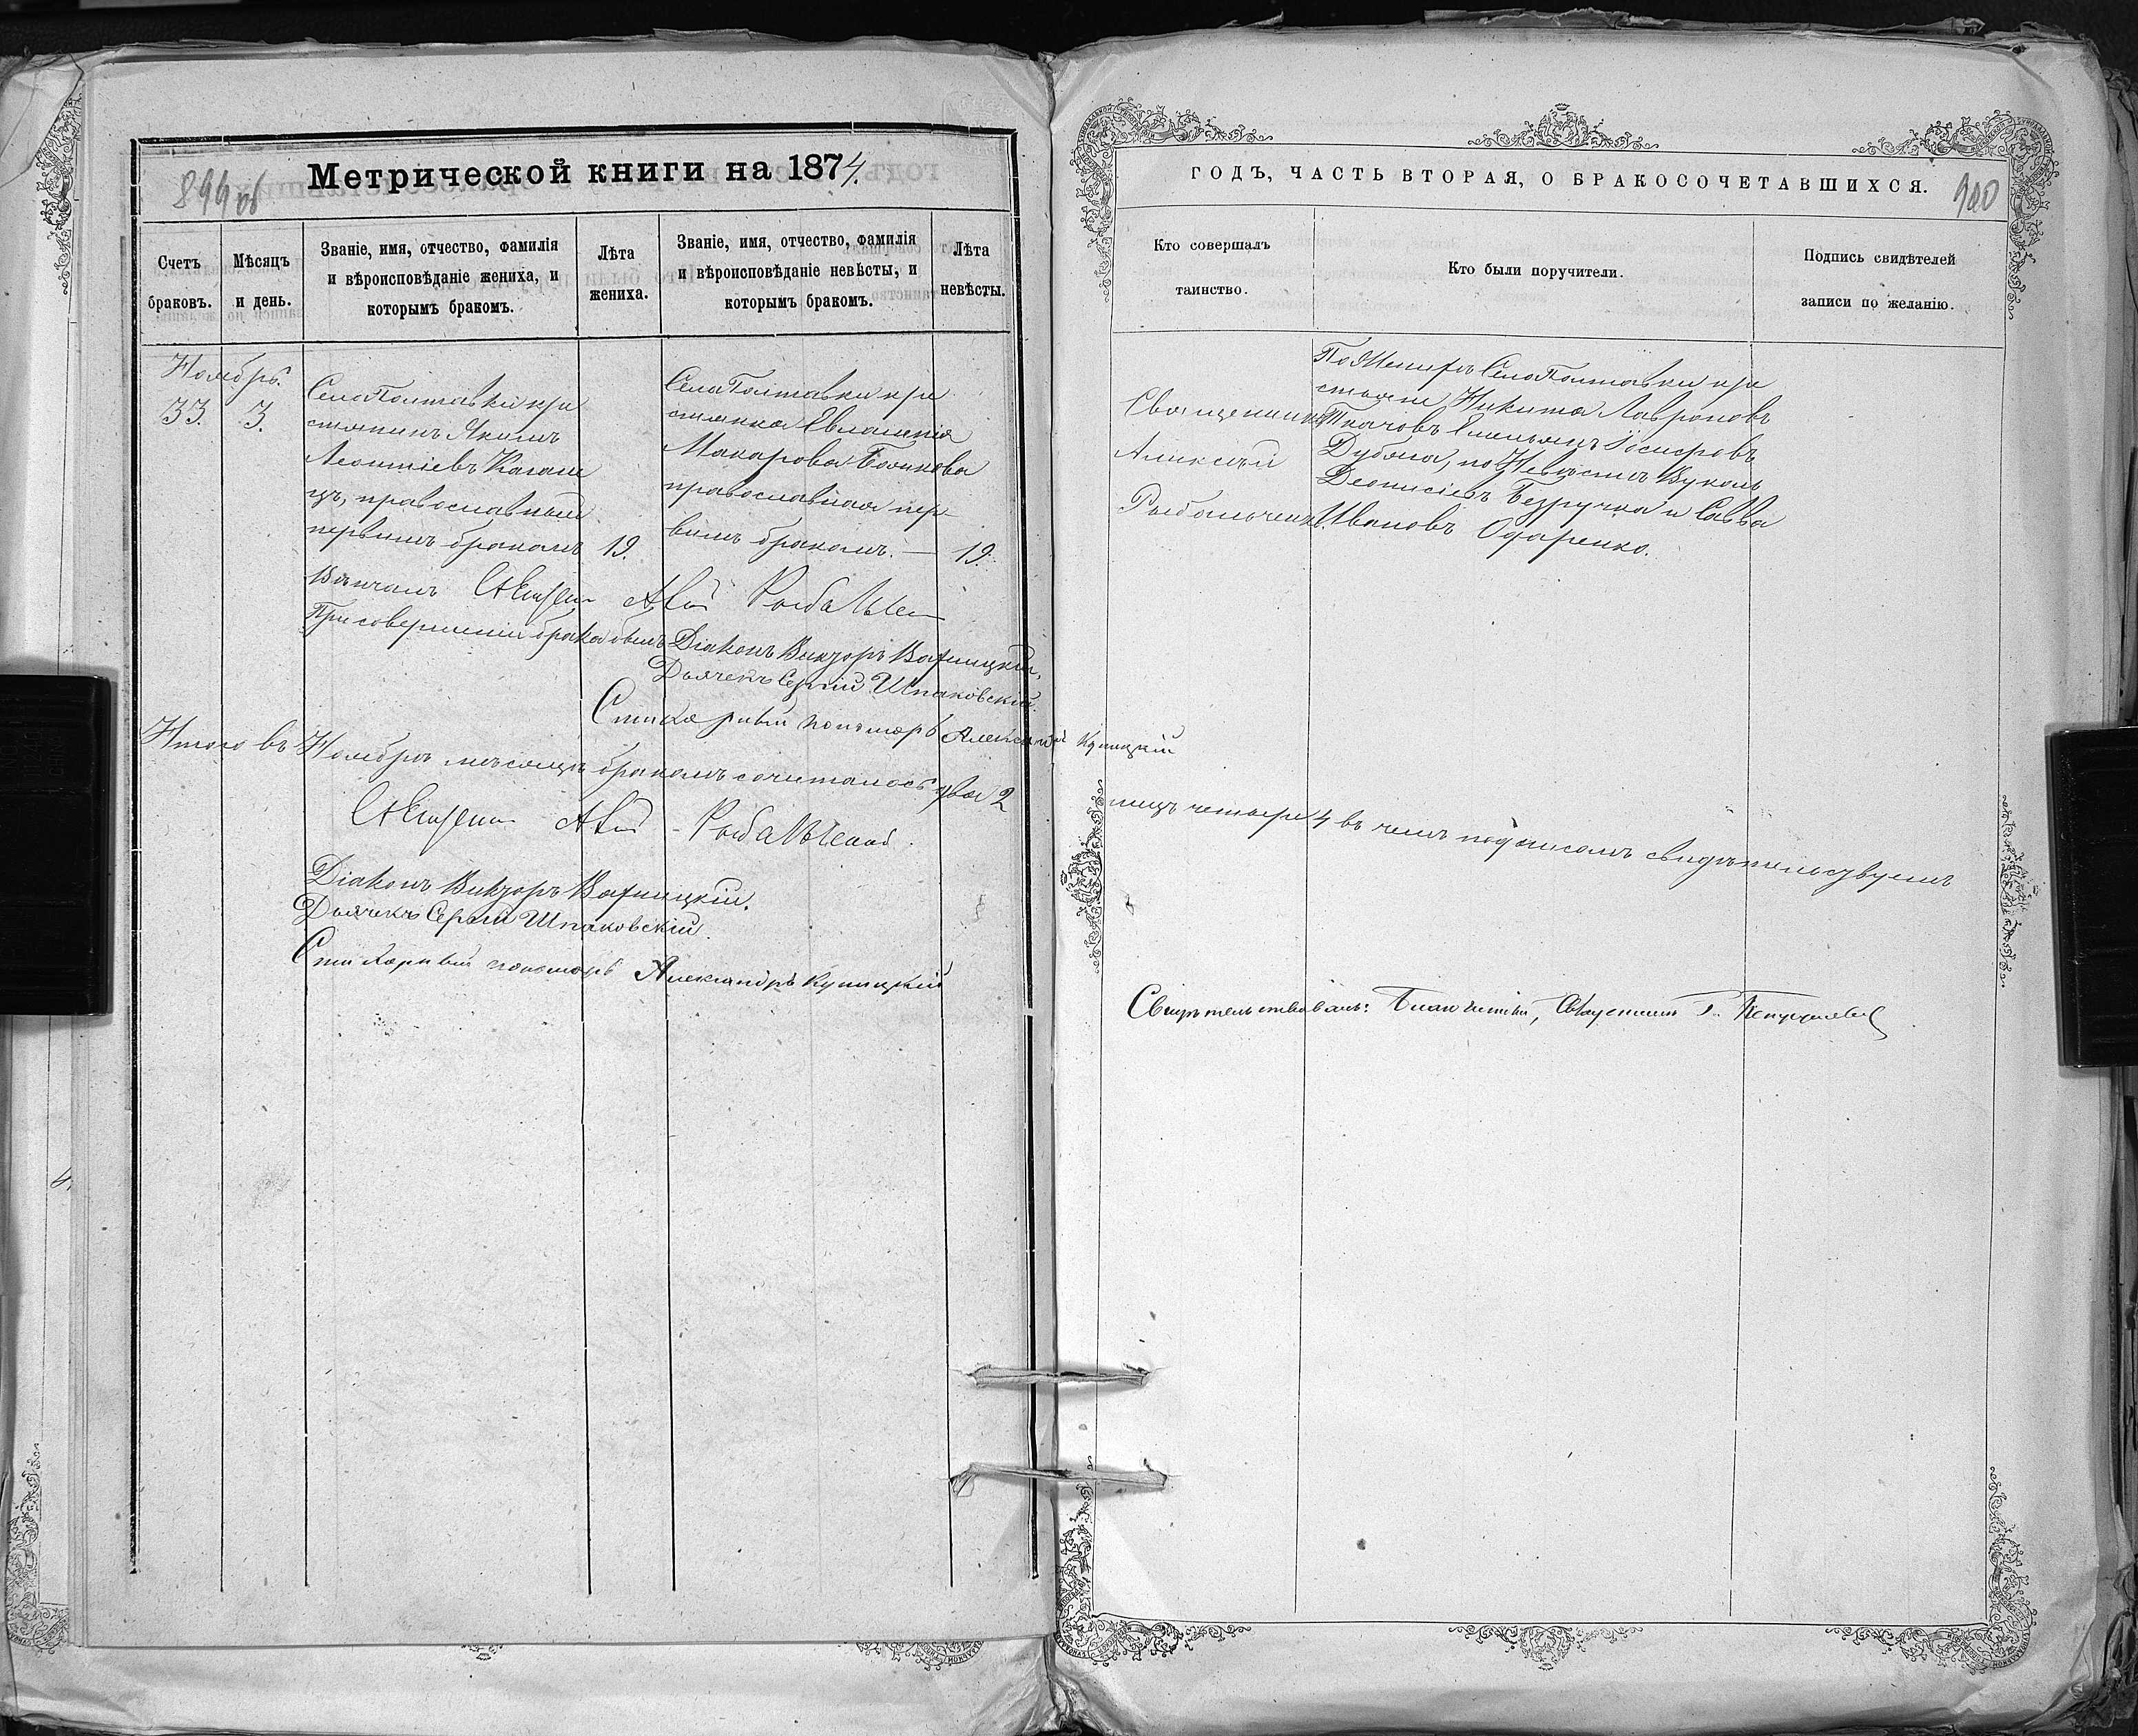 899 об
Метрической книги на 1874.
Счетъ браковъ.
Мѣсяцъ и день.
Званіе, имя, отчество, фамилія
и вѣроисповѣданіе жениха, и
которымъ бракомъ.
Лѣта жениха.
Званіе, имя, отчество, фамилія
и вѣроисповѣданіе невѣсты, и
которымъ бракомъ.
Лѣта невѣсты.
Ноябрь.
33. 3.
Села Полтавки кре
стьянинъ Якимъ
Леонтіевъ Каган
ецъ, православный
первымъ бракомъ 19.
Села Полтавки кре
стьянка Евлампія
Макарова Бойкова
православная пер-
вымъ бракомъ. — 19.
Вѣнчалъ
При совершеніи брака былъ Діаконъ Викторъ Варницкій,
Дьячекъ Сергій Шпаковскій.
Стихарный пономарь Александръ Куницкій
Итого въ Ноябрѣ мѣсяцѣ бракомъ сочеталось два 2
Діаконъ Викторъ Варницкій.
Дьячекъ Сергій Шпаковскій.
Стихарный пономарь Александръ Куницкій
ГОДЪ, ЧАСТЬ ВТОРАЯ, О БРАКОСОЧЕТАВШИХСЯ.
900
Кто совершалъ
таинство.
Кто были поручители.
Подпись свидѣтелей
записи по желанію.
Священникъ
Алексѣй
Рыбальченко
По Женихѣ Села Полтавки кре
стьяне Никита Лавроновъ
Ткачовъ Емельянъ Іосифовъ
Дубяга, по Невѣстѣ Вуколъ
Деонисіевъ Безручка и Савва
Ивановъ Одаренко.
лицъ четыре 4 въ чемъ подписомъ свидѣтельствуемъ
Свидѣтельствовалъ: Благочинный, Священникъ